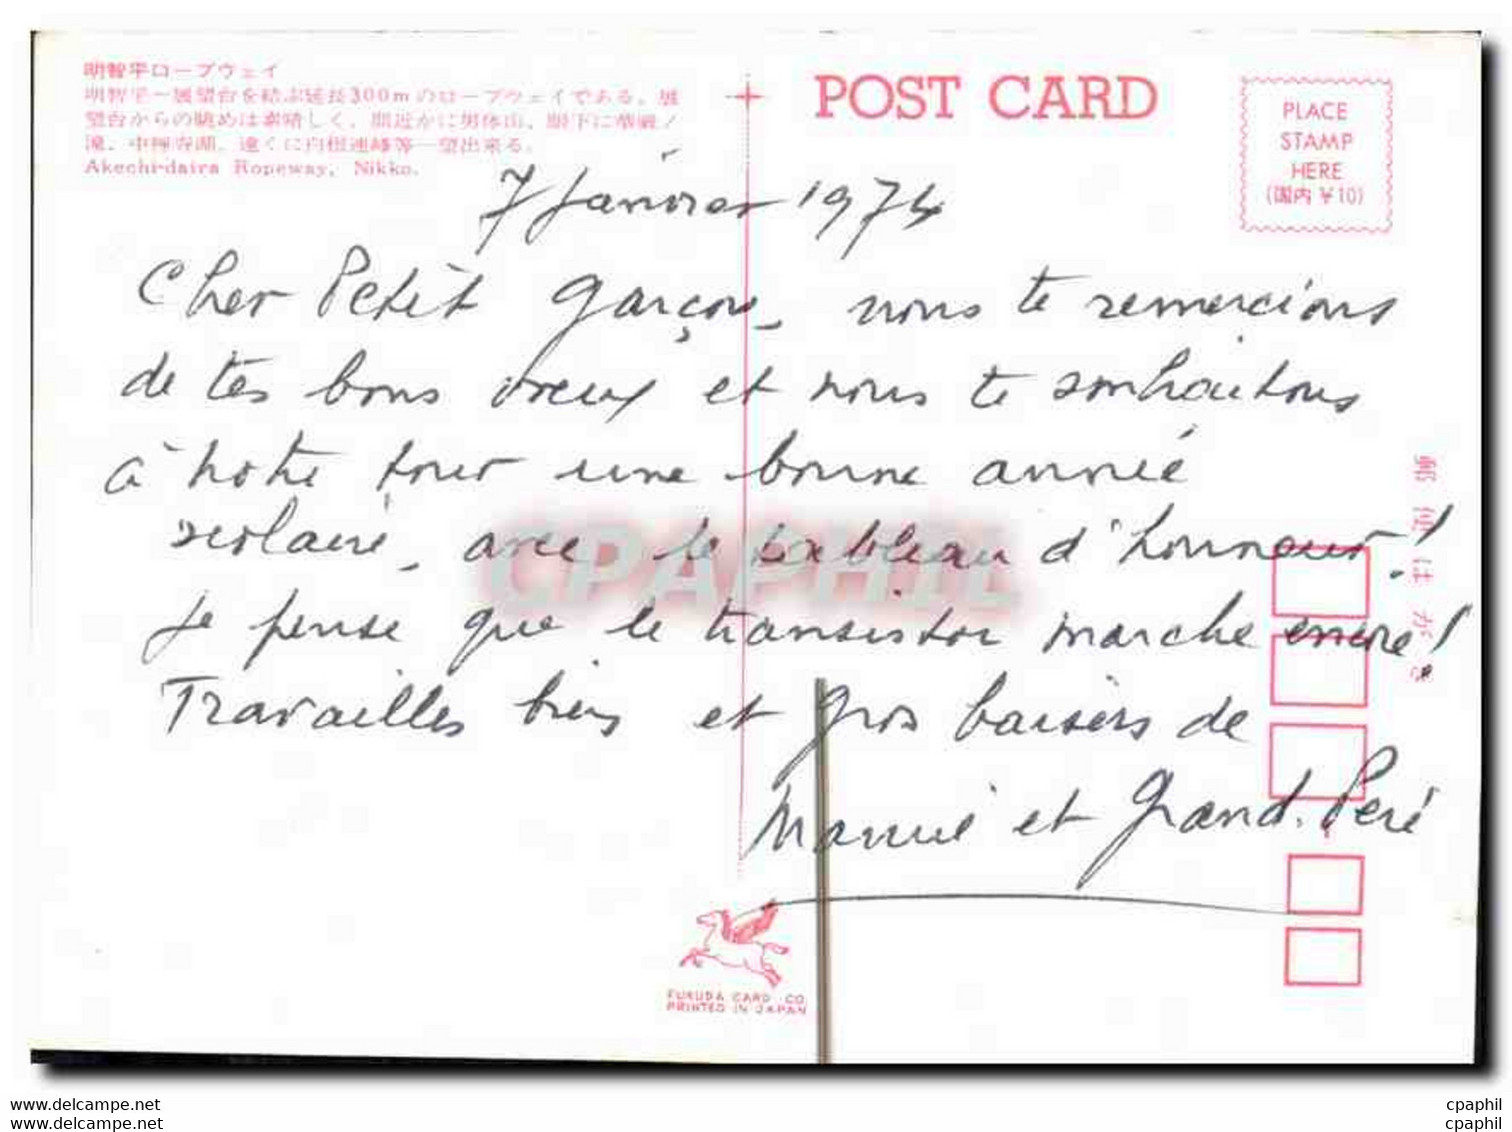 明智平ロープウェイ
明智平〜展望台を結ぶ延長300mのロープウェイである。展
望台からの眺めは素晴しく、間近かに男体山、眼下に華厳ノ
滝、中禅寺湖、遠くに白根連峰等一望出来る。
Akechi-daira Ropeway, Nikko.
POST CARD
PLACE
STAMP
HERE
(国内 ¥10)
7 Janvier 1974
Cher Petit garçon, nous te remercions
de tes bons voeux et nous te souhaitons
à notre tour une bonne année
scolaire, avec le tableau d'honneur!
Je pense que le transistor marche encore!
Travailles bien et gros baisers de
Mamie et Grand. Père
郵便はがき
CPAPHIL
FUKUDA CARD CO
PRINTED IN JAPAN
www.delcampe.net
www.delcampe.net
cpaphil
cpaphil